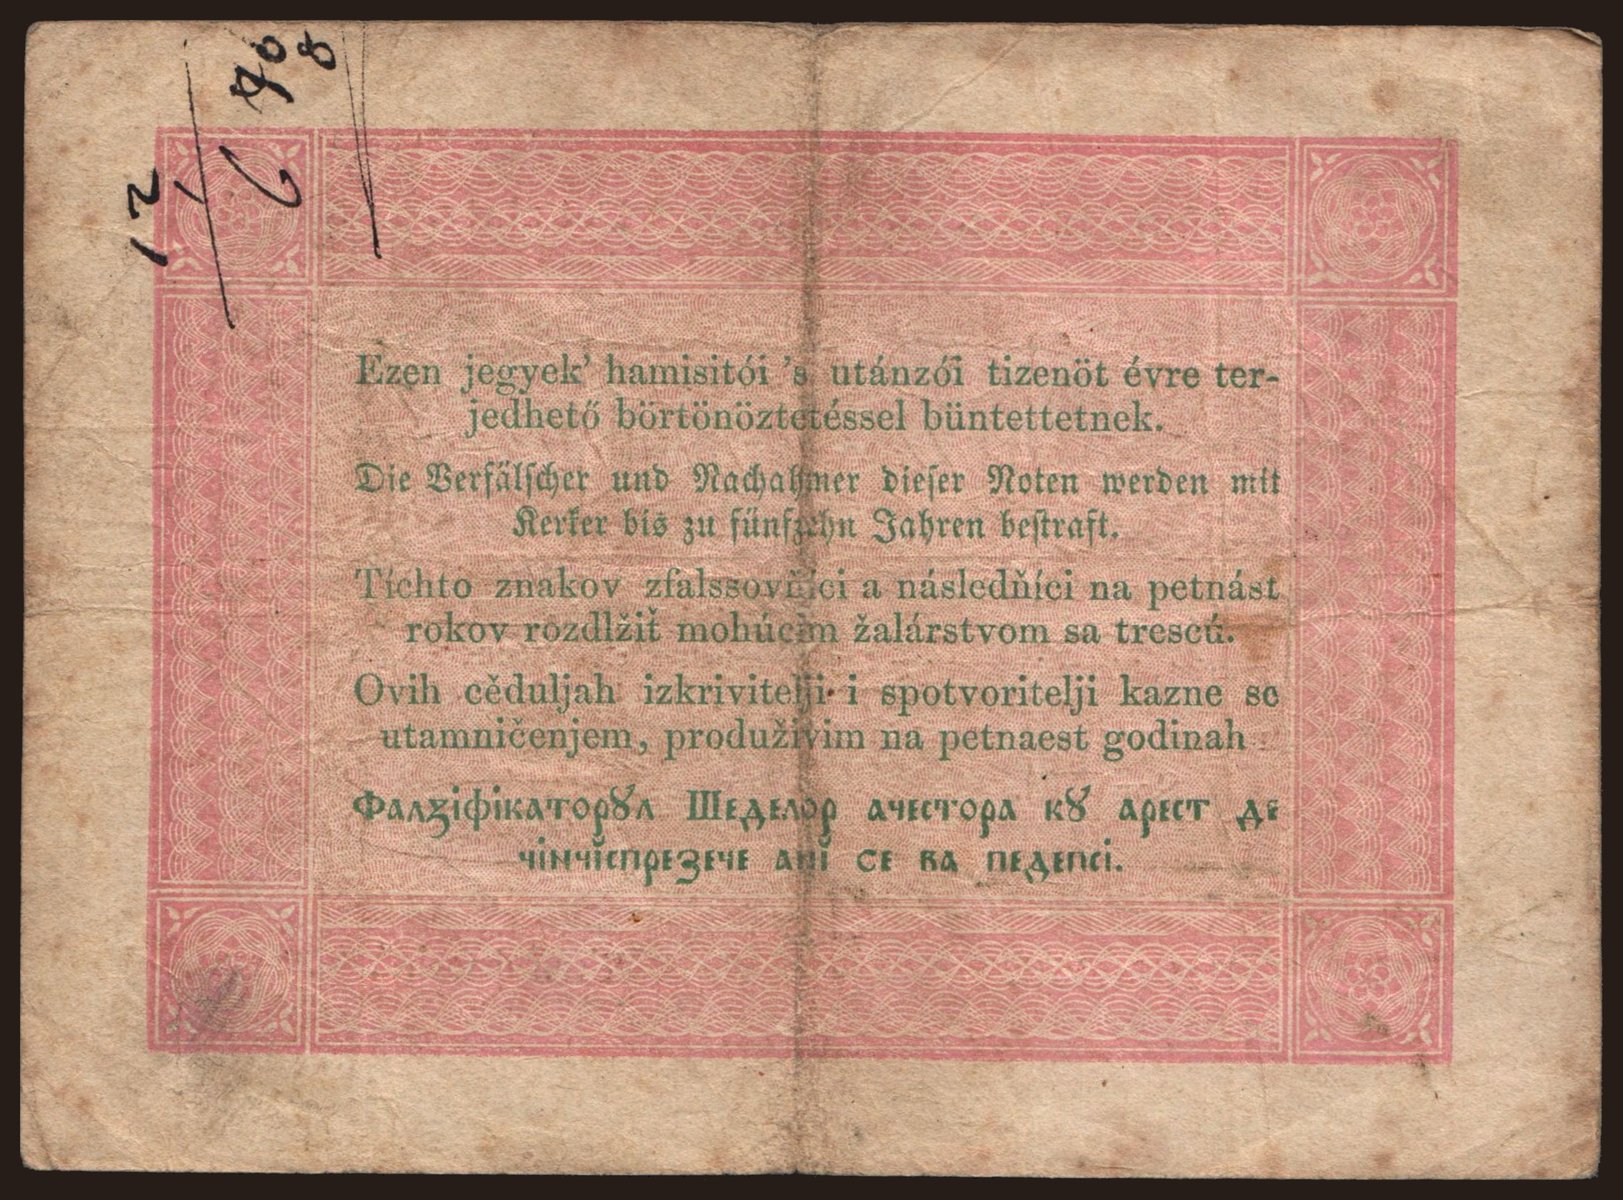 Ezen jegyek' hamisitói 's utánzói tizenöt évre ter-
jedhető börtönöztetéssel büntettetnek.
Die Verfälscher und Nachahmer dieser Noten werden mit
Kerker bis zu fünfzehn Jahren bestraft.
Tíchto znakov zfalssovňíci a následňíci na petnást
rokov rozdlžiť mohúcim žalárstvom sa trescú.
Ovih cěduljah izkrivitelji i spotvoritelji kazne se
utamničenjem, produživim na petnaest godinah
Фалꙁіфікаторꙋл Шеделор ачестора кꙋ арест де
чінчĭспрезече анĭ се ва педепсі.